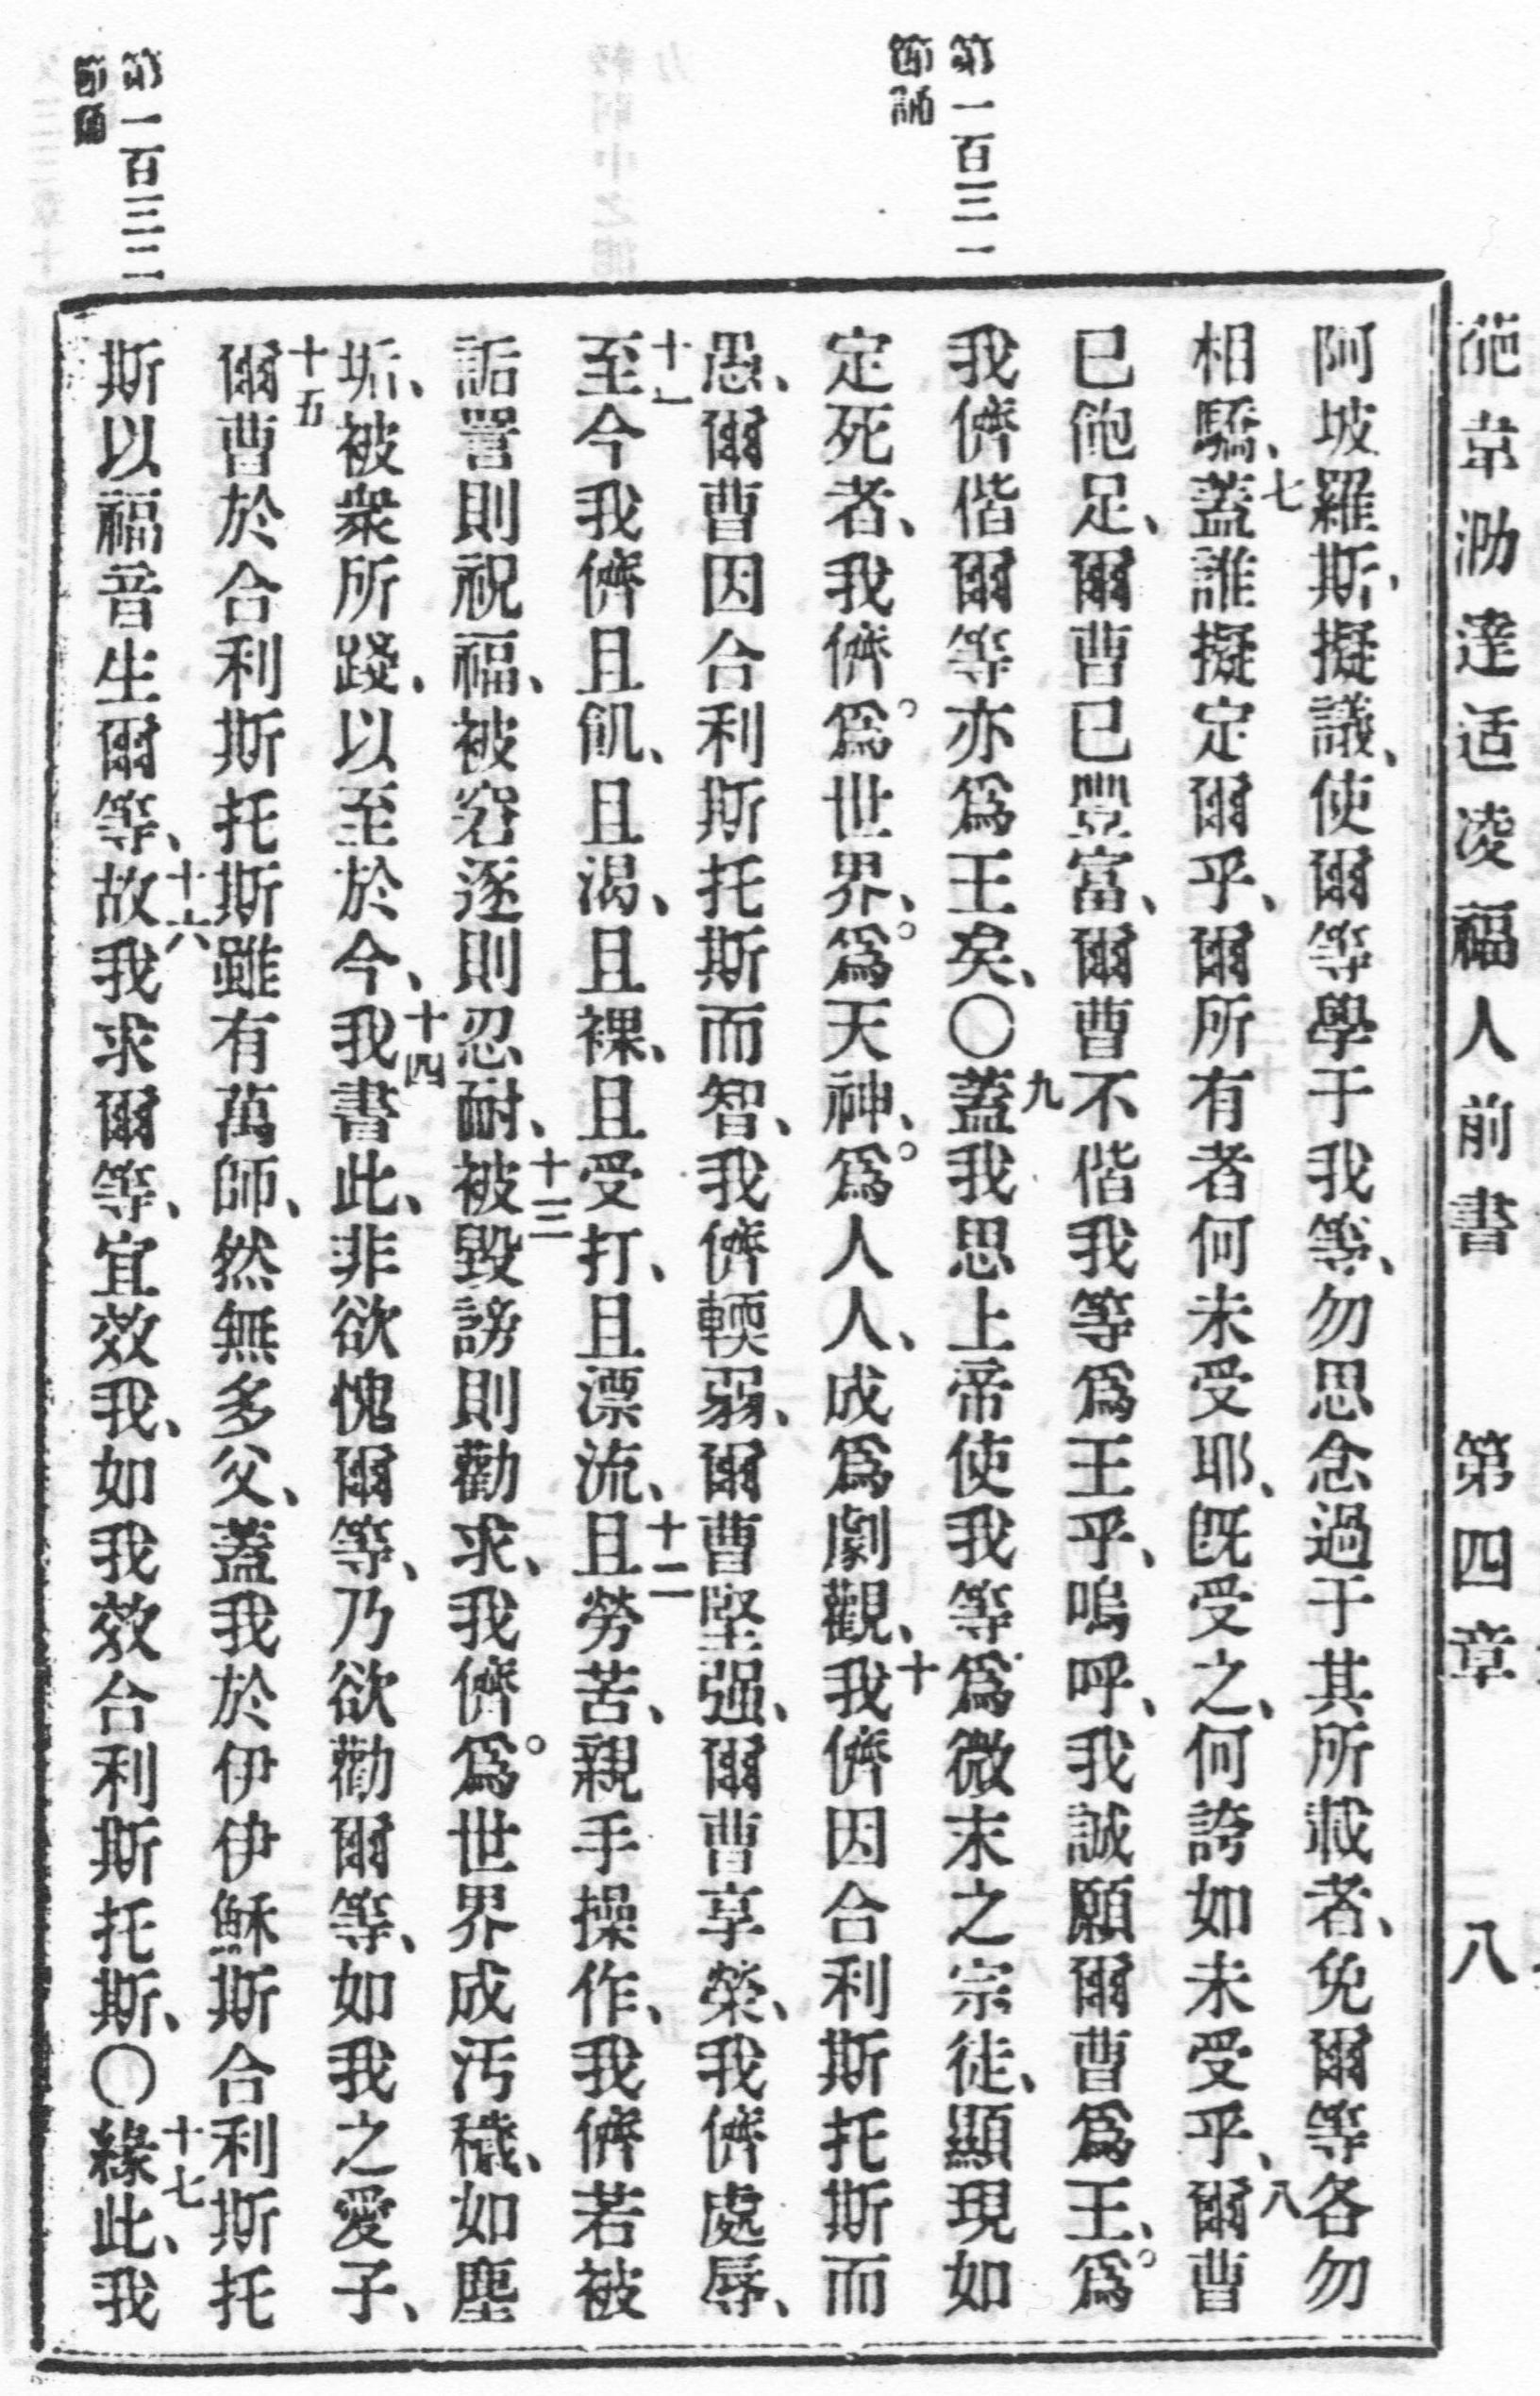 適凌福人前書 第四章 八
阿坡羅斯、擬議、使爾等學于我等、勿思念過于其所載者、免爾等各勿
相驕、七蓋誰擬定爾乎、爾所有者何未受耶、既受之、何誇如未受乎、八爾曹
已飽足、爾曹已豐富、爾曹不偕我等爲王乎、嗚呼、我誠願爾曹爲王、爲
我儕偕爾等亦爲王矣、〇九蓋我思上帝使我等爲微末之宗徒、顯現如
定死者、我儕爲世界、爲天神、爲人人、成爲劇觀、十我儕因合利斯托斯而
愚、爾曹因合利斯托斯而智、我儕輭弱、爾曹堅强、爾曹享榮、我儕處辱、
十一至今我儕且飢、且渴、且裸、且受打、且漂流、十二且勞苦、親手操作、我儕若被
詬詈則祝福、被窘逐則忍耐、十三被毀謗則勸求、我儕爲世界成汚穢、如塵
垢、被衆所踐、以至於今、十四我書此、非欲愧爾等、乃欲勸爾等、如我之愛子、
十五爾曹於合利斯托斯雖有萬師、然無多父、蓋我於伊伊穌斯合利斯托
斯以福音生爾等、十六故我求爾等、宜效我、如我效合利斯托斯、〇十七緣此、我
第一百三一
節誦
第一百三二
節誦